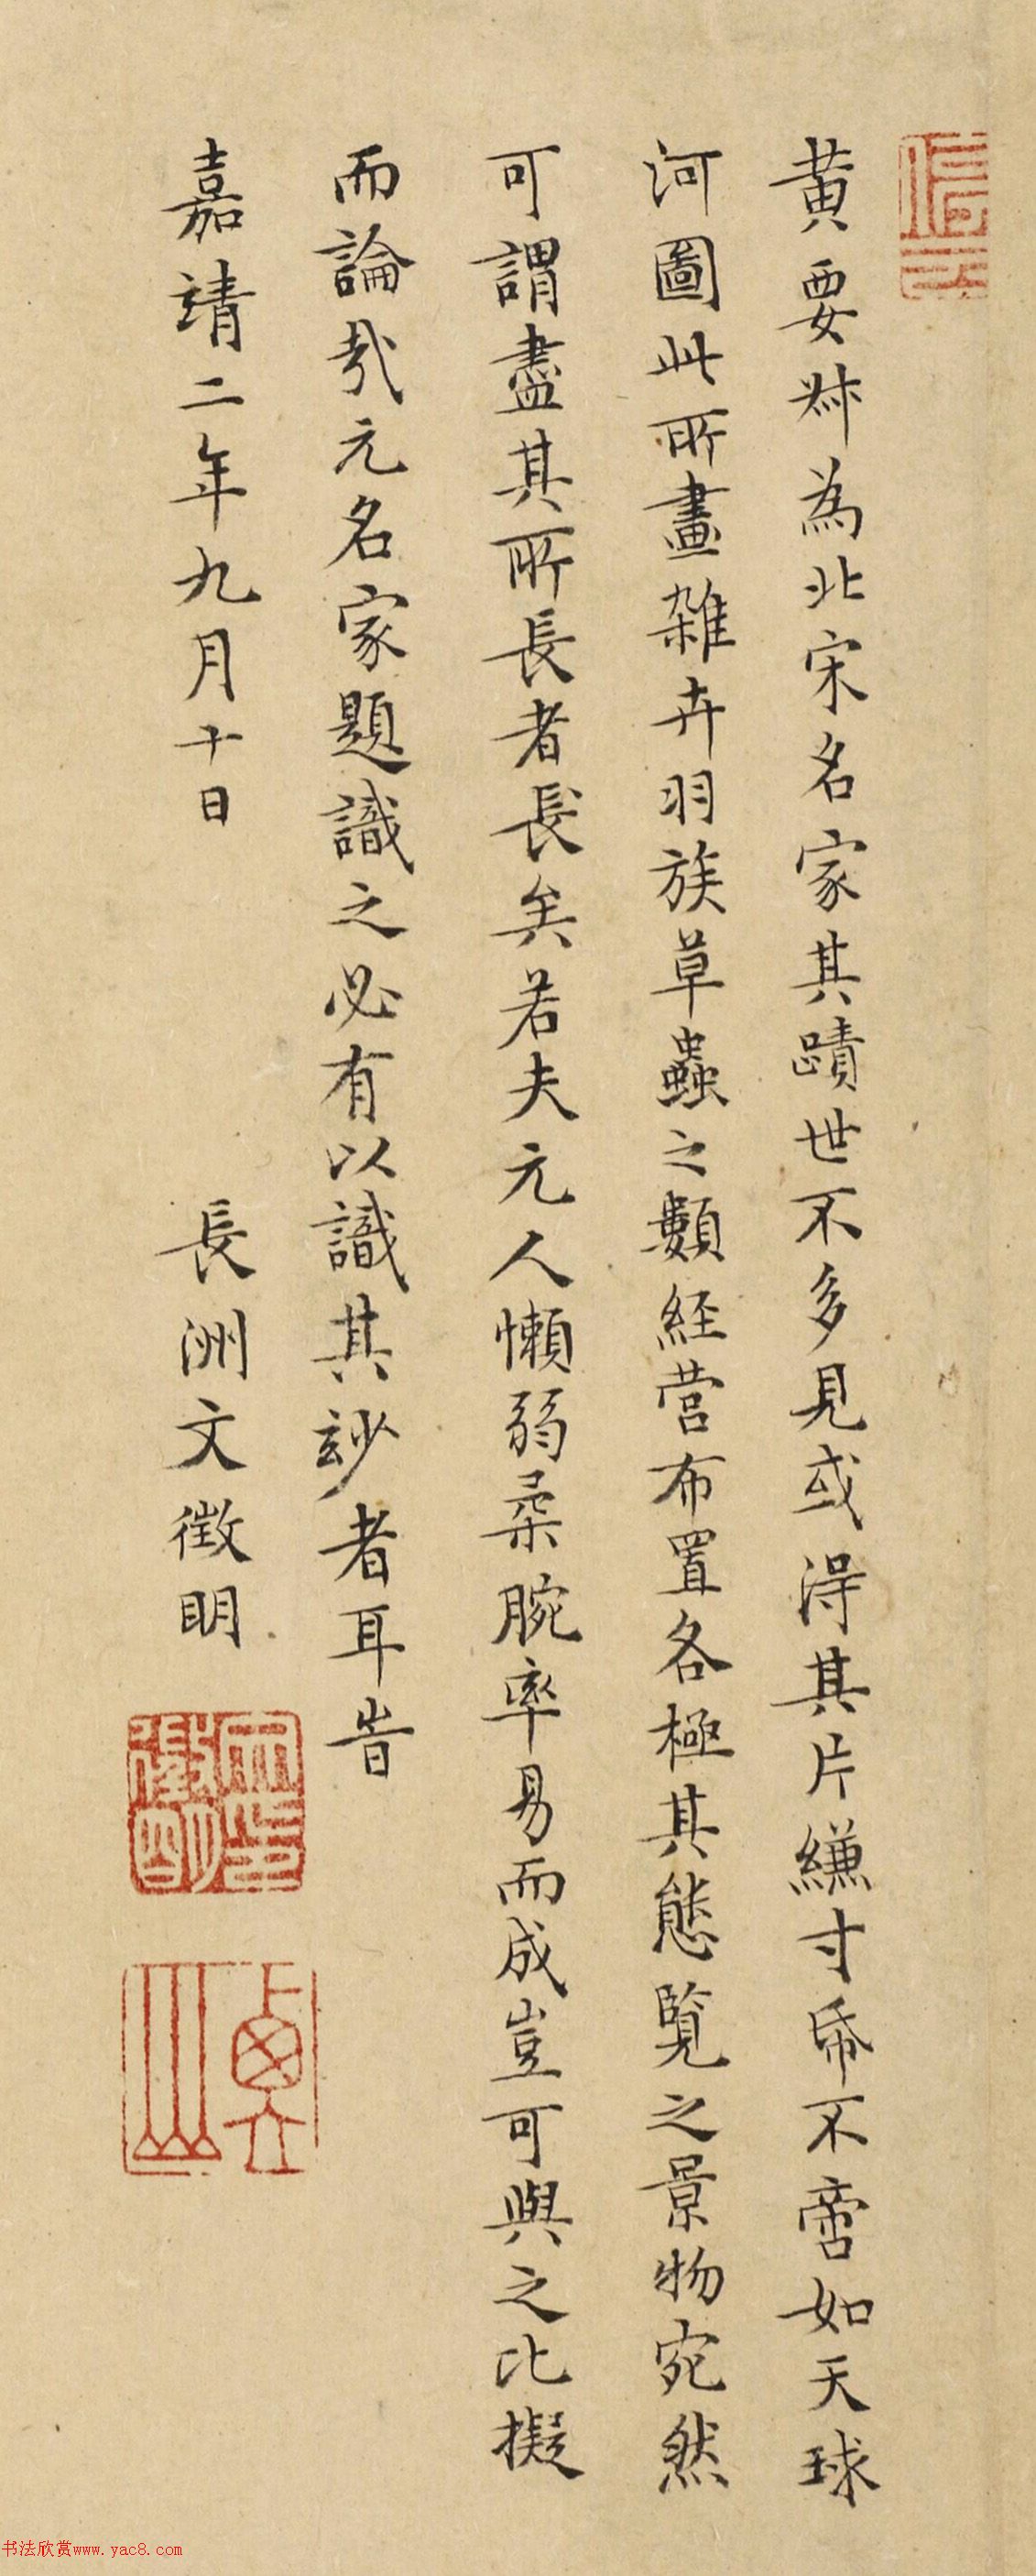 黃要叔為北宋名家其蹟世不多見或得其片縑寸帋不啻如天球
河圖此所畫雜卉羽族草蟲之類経营布置各極其態覽之景物宛然
可謂盡其所長者長矣若夫元人懶弱柔腕率易而成豈可與之比擬
而論哉元名家題識之必有以識其玅者耳旹
嘉靖二年九月十日
長洲文徵明
文徵明印
貞山
书法欣赏www.yac8.com